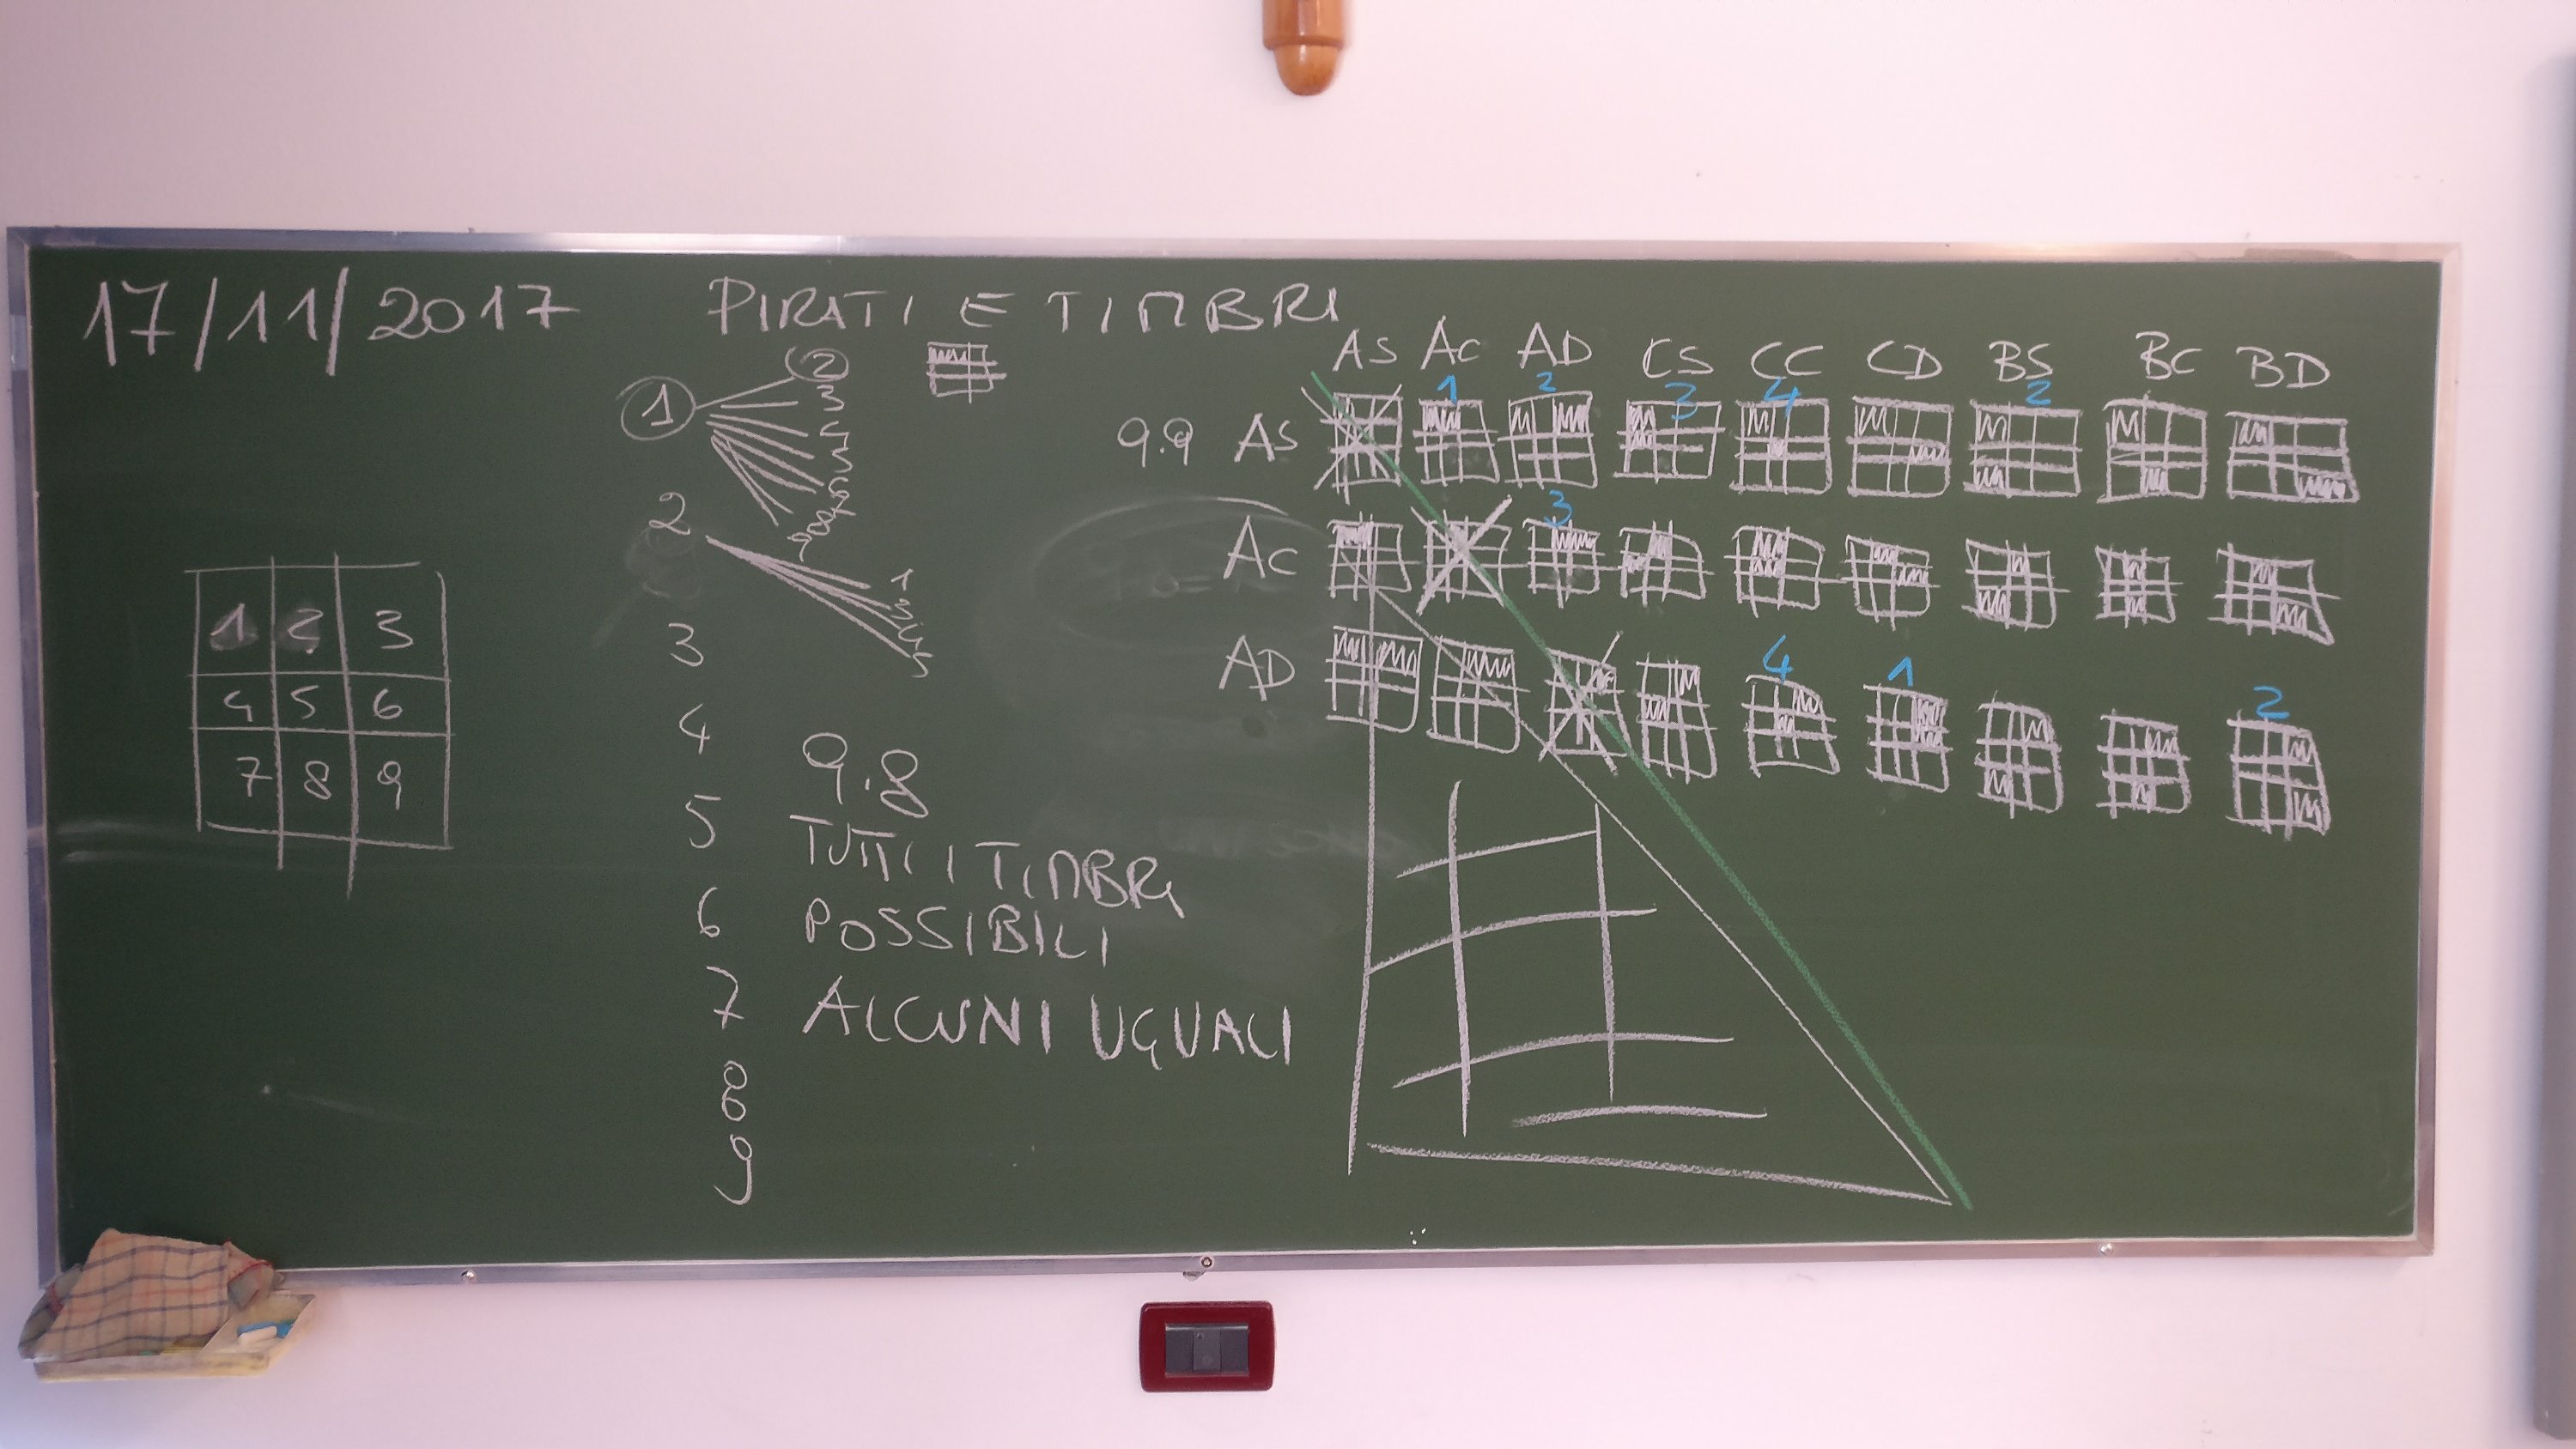 17/11/2017 PIRATI E TIMBRI
1 2
3
9
2
1
3
4
5
3
4
5
6
7
8
9
1 2 3
4 5 6
7 8 9
9.8
TUTTI I TIMBRI
POSSIBILI
ALCUNI UGUALI
AS AC AD CS CC CD BS BC BD
1 2 3 4 2
9.9 AS
3
AC
4 1 2
AD